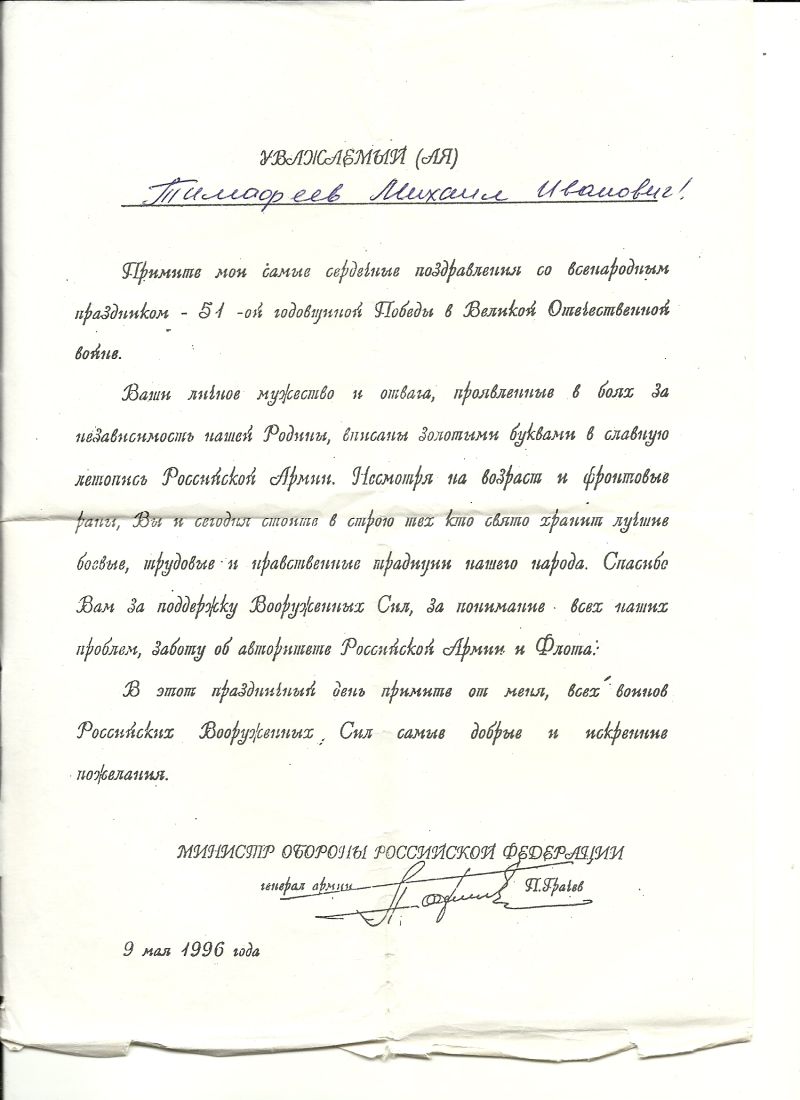 УВАЖАЕМЫЙ (АЯ)
Тимофеев Михаил Иванович!
Примите мои самые сердечные поздравления со всенародным
праздником - 51 -ой годовщиной Победы в Великой Отечественной
войне.
Ваши личное мужество и отвага, проявленные в боях за
независимость нашей Родины, вписаны золотыми буквами в славную
летопись Российской Армии. Несмотря на возраст и фронтовые
раны, Вы и сегодня стоите в строю тех кто свято хранит лучшие
боевые, трудовые и нравственные традиции нашего народа. Спасибо
Вам за поддержку Вооруженных Сил, за понимание всех наших
проблем, заботу об авторитете Российской Армии и Флота.
В этот праздничный день примите от меня, всех воинов
Российских Вооруженных Сил самые добрые и искренние
пожелания.
МИНИСТР ОБОРОНЫ РОССИЙСКОЙ ФЕДЕРАЦИИ
генерал армии П.Грачев
9 мая 1996 года